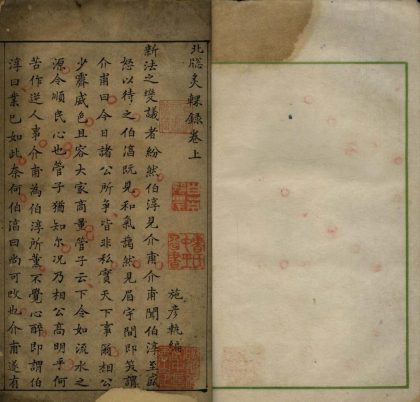 北牕炙輠錄卷上
施彥執編
新法之變議者紛然伯淳見介甫介甫聞伯淳至盛
怒以待之伯淳既見和氣藹然見眉宇間即笑謂
介甫曰今日諸公所爭皆非私實天下事爾相公
少霽威色且容大家商量管子云下令如流水之
源令順民心也管子猶知尔况乃相公高明乎何
苦作逆人事介甫為伯淳所薰不覺心醉即謂伯
淳曰業已如此奈何伯淳曰尚可改也介甫遂有